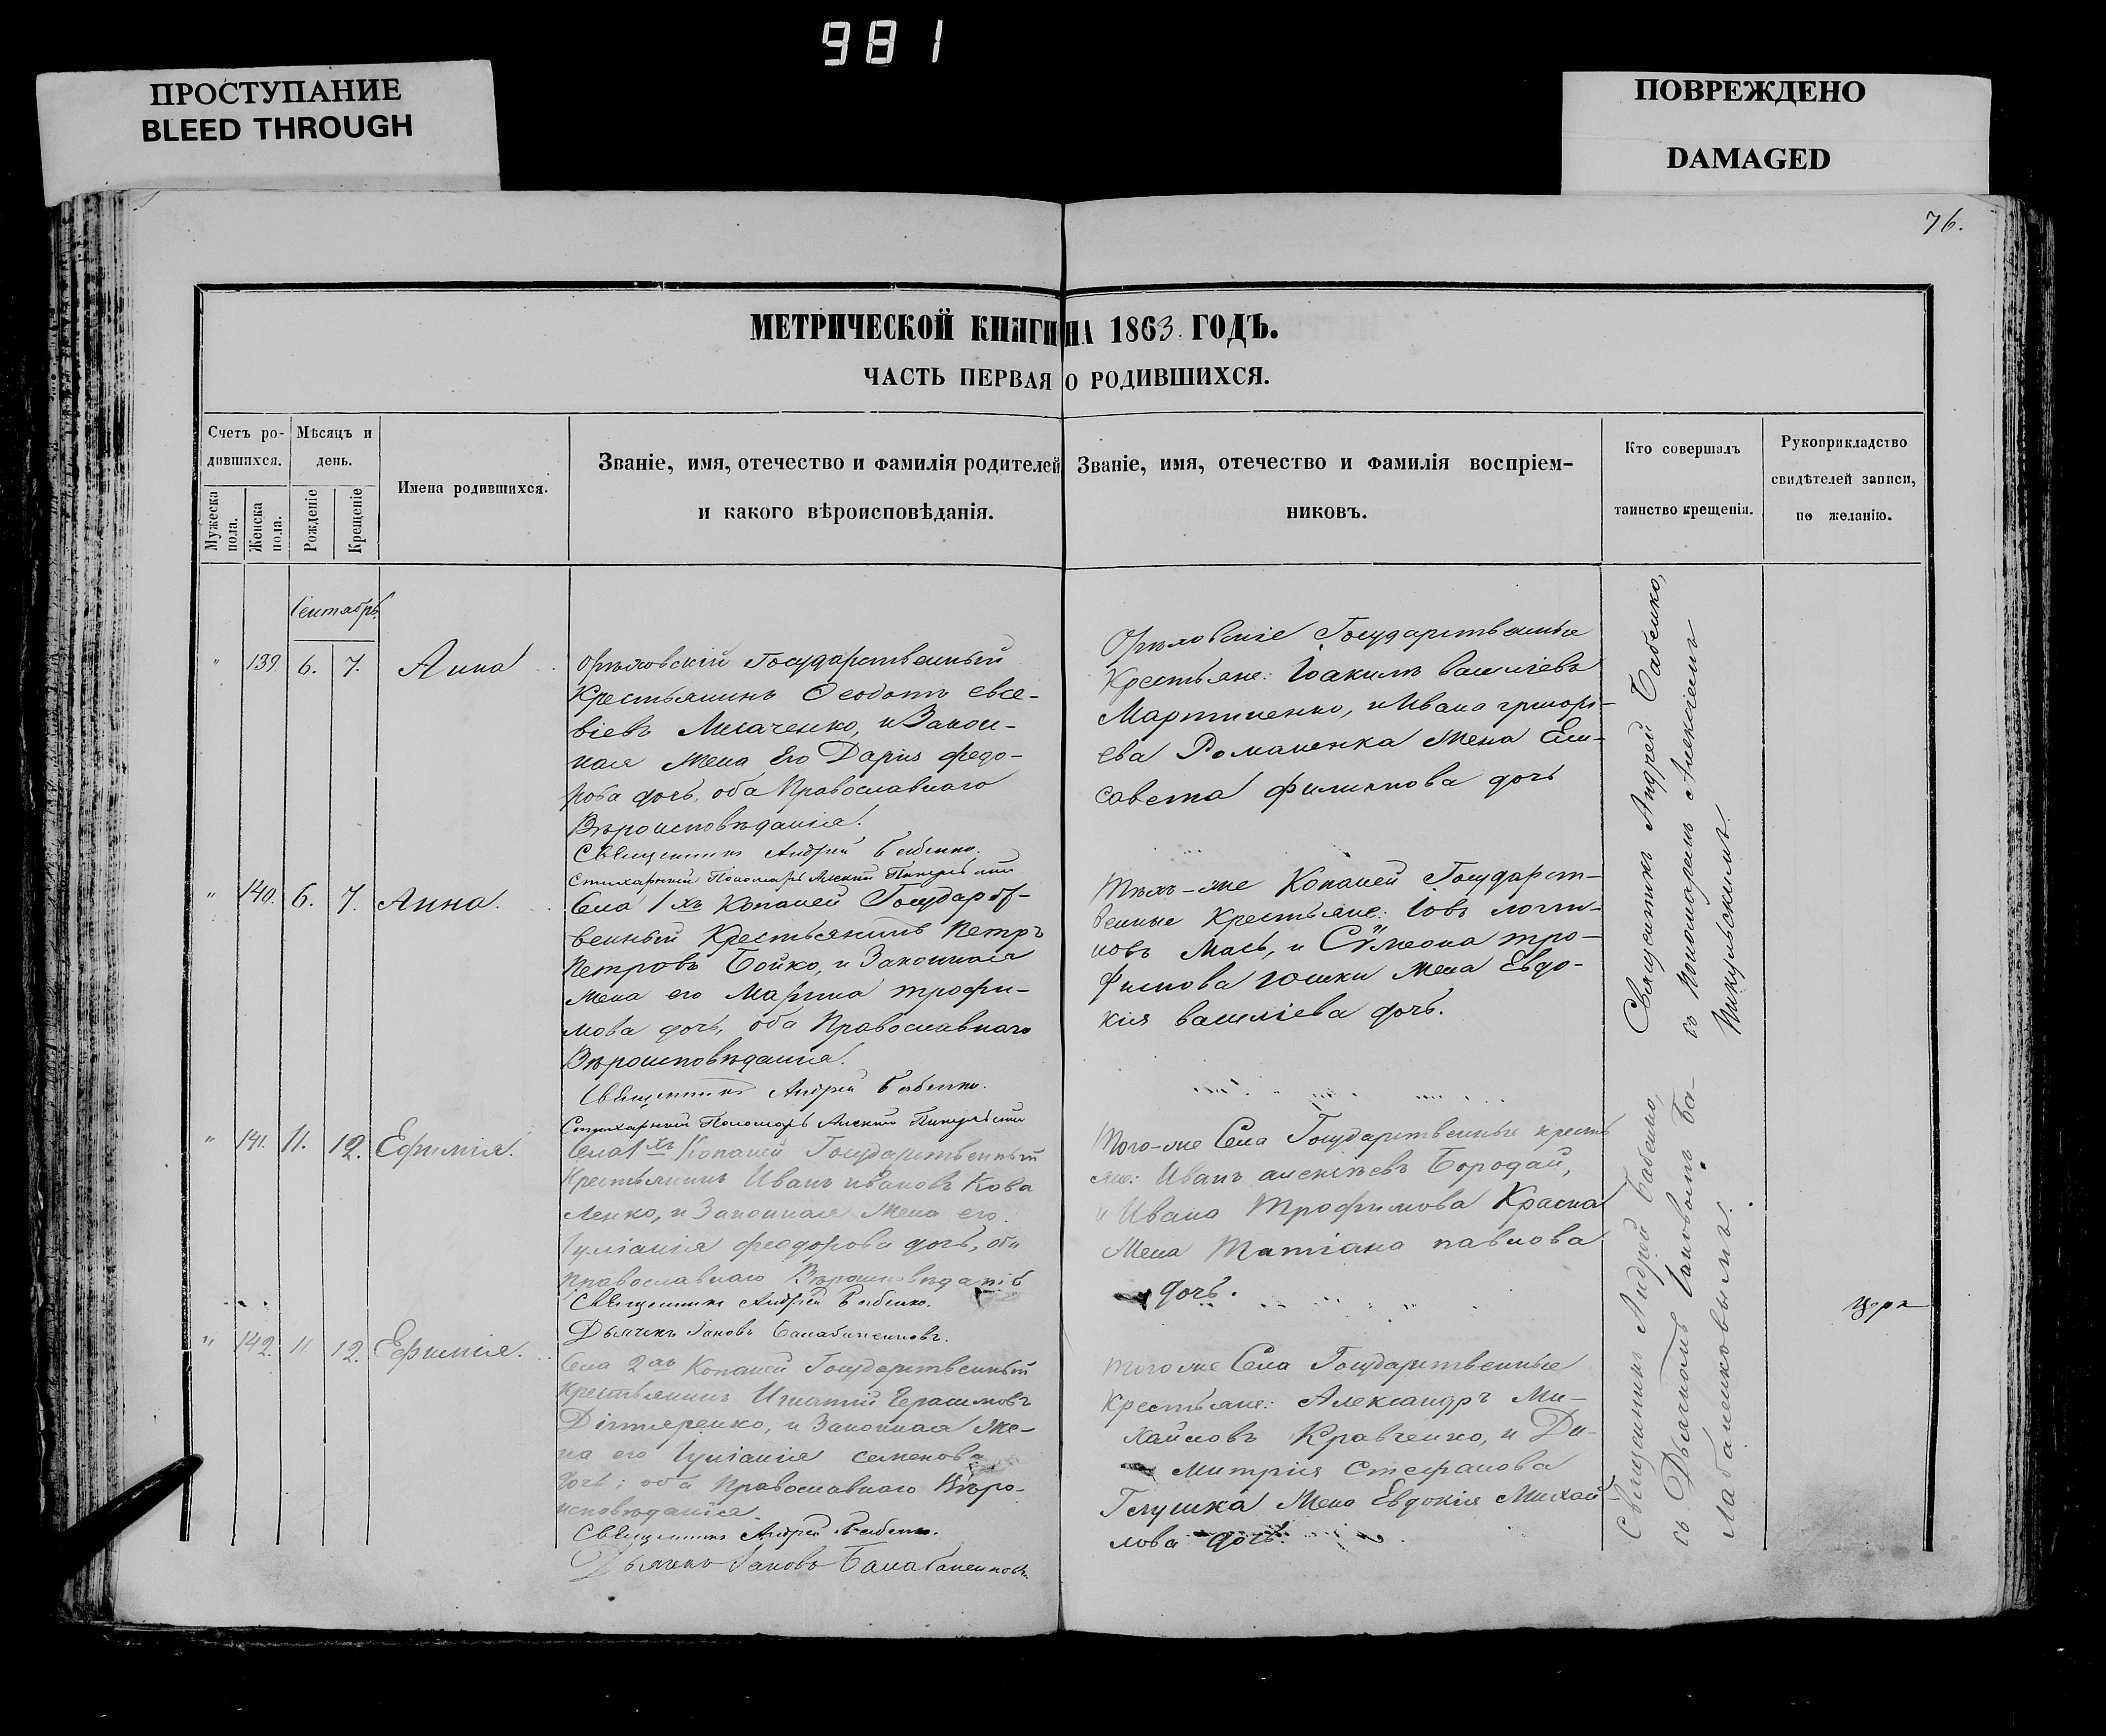 981
ПРОСТУПАНИЕ
BLEED THROUGH
ПОВРЕЖДЕНО
DAMAGED
76.
МЕТРИЧЕСКОЙ КНИГИ НА 1863. ГОДЪ.
ЧАСТЬ ПЕРВАЯ О РОДИВШИХСЯ.
Счетъ ро-
дившихся.
Мужеска
пола.
Женска
пола.
Мѣсяцъ и
день.
Рожденіе
Крещеніе
Имена родившихся.
Званіе, имя, отечество и фамилія родителей
и какого вѣроисповѣданія.
Званіе, имя, отечество и фамилія воспріем-
никовъ.
Кто совершалъ
таинство крещенія.
Рукоприкладство
свидѣтелей записи,
по желанію.
Сентябрь
" 139. 6. 7. Анна
Орѣховскій Государственный
Крестьянинъ Ѳеодотъ евсе-
віевъ и Закон-
ная жена Его Дарія федо-
рова дочь, оба Православнаго
Вѣроисповѣданія.
Священникъ Андрей Бабенко.
Стихарный Пономарь
Орѣховскіе Государственные
Крестьяне: Іоакимъ василіевъ
Мартиненко, и Ивана григорі-
ева Романенка жена Ели-
савета филиппова дочь
" 140. 6. 7. Анна.
Села 1хъ Копаней Государст-
венный Крестьянинъ Петръ
Петровъ Бойко, и Законная
жена его Марина трофи-
мова дочь, оба Православнаго
Вѣроисповѣданія.
Священникъ Андрей Бабенко.
Стихарный Пономарь
Тѣхъ-же Копаней Государст-
венные Крестьяне: Іовъ логги-
новъ Мась, и Сѵмеона тро-
фимова жена Евдо-
кія василіева дочь.
Священникъ Андрей Бабенко,
съ Пономаремъ Алексіемъ
" 141. 11. 12. Ефимія.
Села 1хъ Копаней Государственный
Крестьянинъ Иванъ ивановъ Кова
ленко, и Законная жена его
Іуліанія феодорова дочь, оба
православнаго Вѣроисповѣданія
Священникъ Андрей Бабенко.
Дьячекъ Іаковъ
Того-же Села Государственные крестья
не: Иванъ алексѣевъ Бородай,
и Ивана Трофимова Красна
жена Татіана павлова
дочь.
" 142. 11. 12. Ефимія.
Села 2хъ Копаней Государственный
Крестьянинъ Игнатій Герасимовъ
Дігтяренко, и Законная же-
на его Іуліанія семенова
дочь; оба Православнаго Вѣро-
исповѣданія.
Священникъ Андрей Бабенко.
Дьячекъ Іаковъ
Того же Села Государственные
Крестьяне: Александръ Ми-
хайловъ Кравченко, и Ди-
митрія Стефанова
Глушка жена Евдокія Михай-
лова дочь.
Священникъ Андрей Бабенко,
съ Дьячкомъ Іаковомъ Ба-
лабаненковымъ.